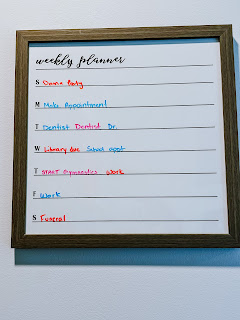 weekly planner
S Dance Party
M Make Appointment
T Dentist Dentist Dr.
W Library due School appt
T START Gymnastics Work
F Work
S Funeral